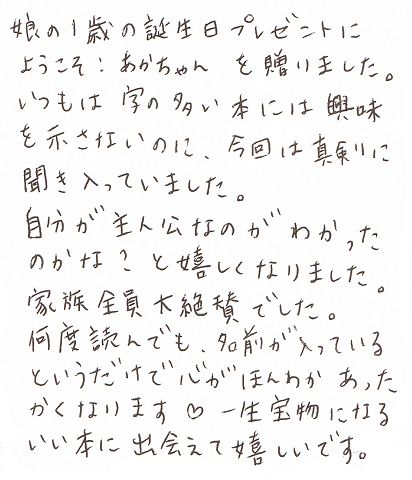 娘の1歳の誕生日プレゼントに
ようこそ!あかちゃん を贈りました。
いつもは字の多い本には興味
を示さないのに、今回は真剣に
聞き入っていました。
自分が主人公なのがわかった
のかな?と嬉しくなりました。
家族全員大絶賛でした。
何度読んでも、名前が入っている
というだけで心がほんわかあった
かくなります♡一生宝物になる
いい本に出会えて嬉しいです。